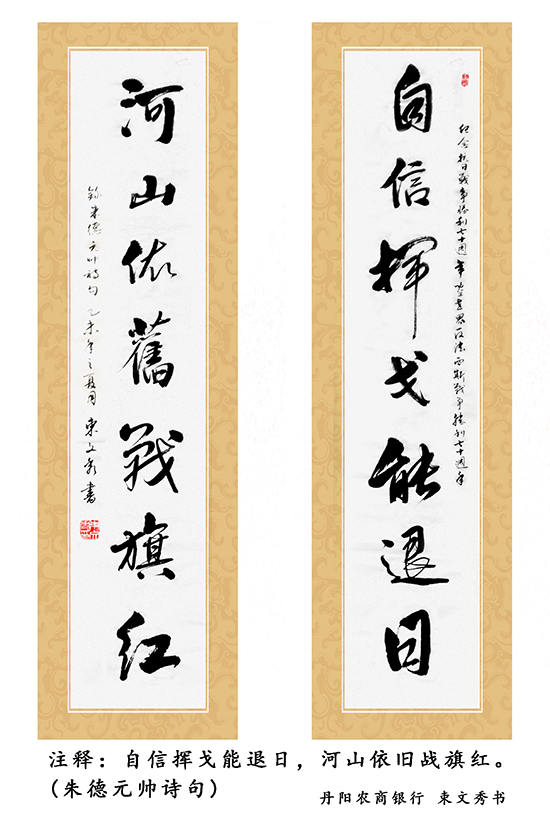 自信揮戈能退日
紀念抗日戰爭勝利七十週年暨世界反法西斯戰爭勝利七十週年
河山依舊戰旗紅
錄朱德元帥詩句 乙未年之夏月 束文秀書
注释：自信挥戈能退日，河山依旧战旗红。
(朱德元帅诗句)
丹阳农商银行 束文秀书